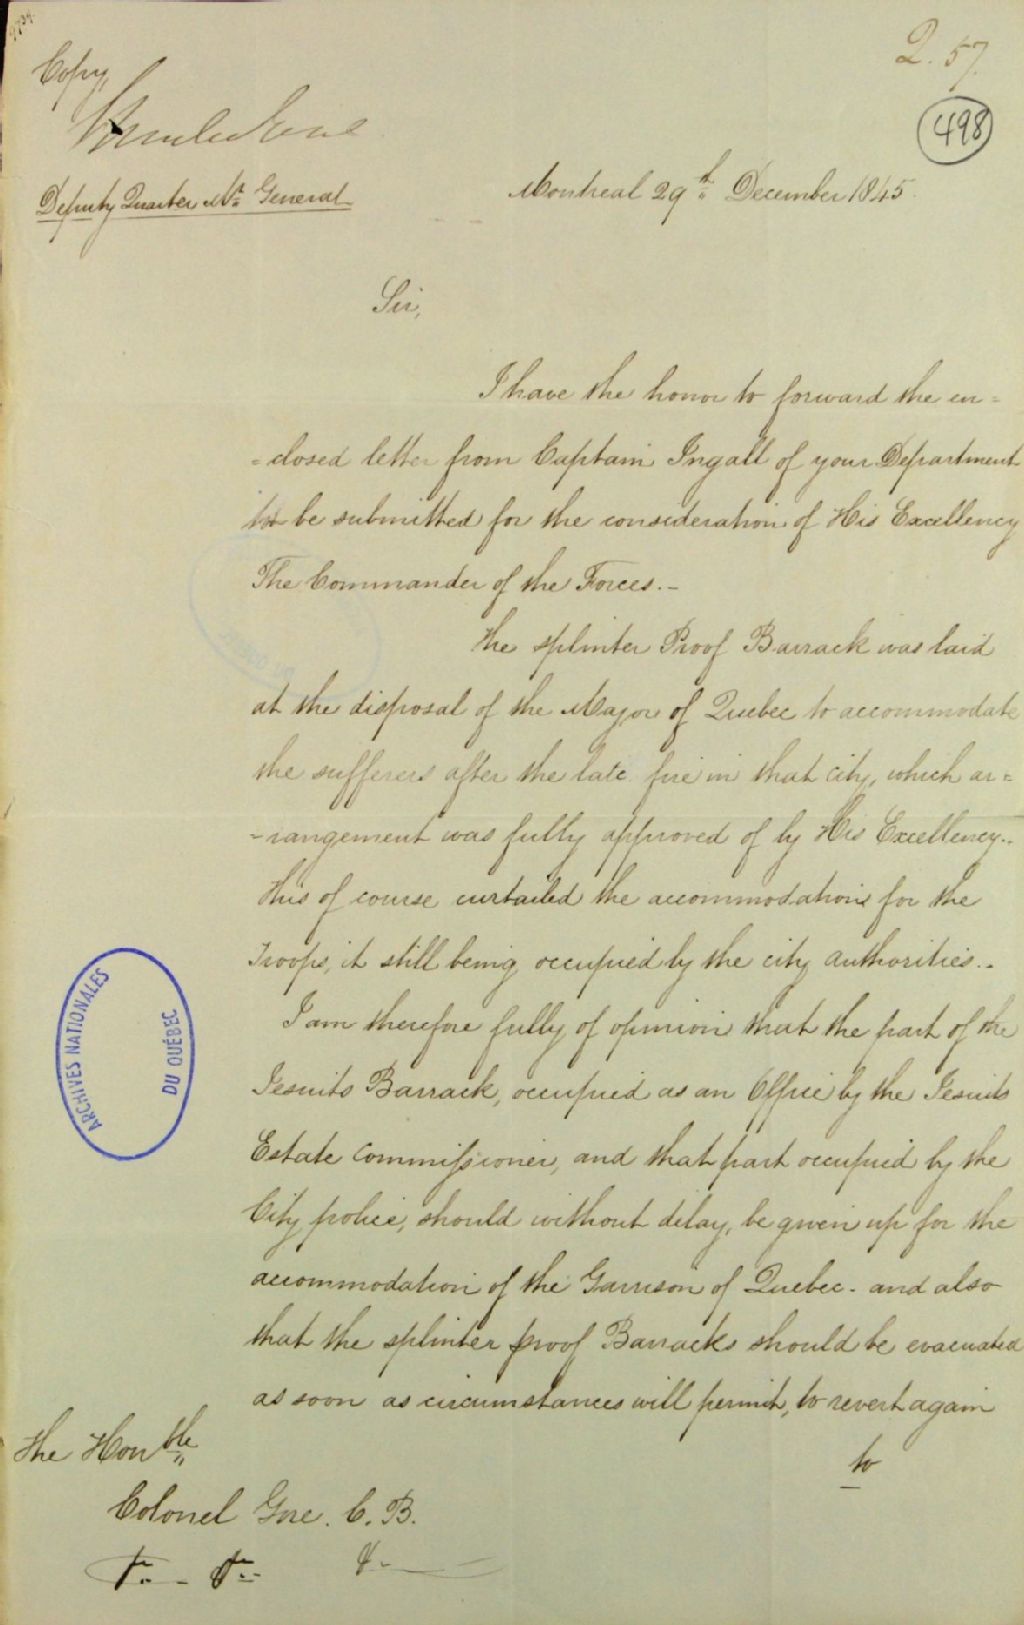 Copy,
Q. 57.
498
Deputy Quarter Mr. General
Montreal 29th December 1845.
Sir,
I have the honor to forward the en=
=closed letter from Captain Ingall of your Department
to be submitted for the consideration of His Excellency
The Commander of the Forces.-
The splinter Proof Barrack was laid
at the disposal of the Mayor of Quebec to accommodate
the sufferers after the late fire in that city, which ar=
=rangement was fully approved of by His Excellency..
This of course curtailed the accommodations for the
Troops, it still being occupied by the city authorities..
I am therefore fully of opinion that the part of the
Jesuits Barrack, occupied as an Office by the Jesuits
Estate Commissioner, and that part occupied by the
City police, should without delay, be given up for the
accommodation of the Garrison of Quebec. and also
that the splinter proof Barracks should be evacuated
as soon as circumstances will permit, to revert again
to
The Honble
Colonel Gore. C. B.
ARCHIVES NATIONALES
DU QUÉBEC